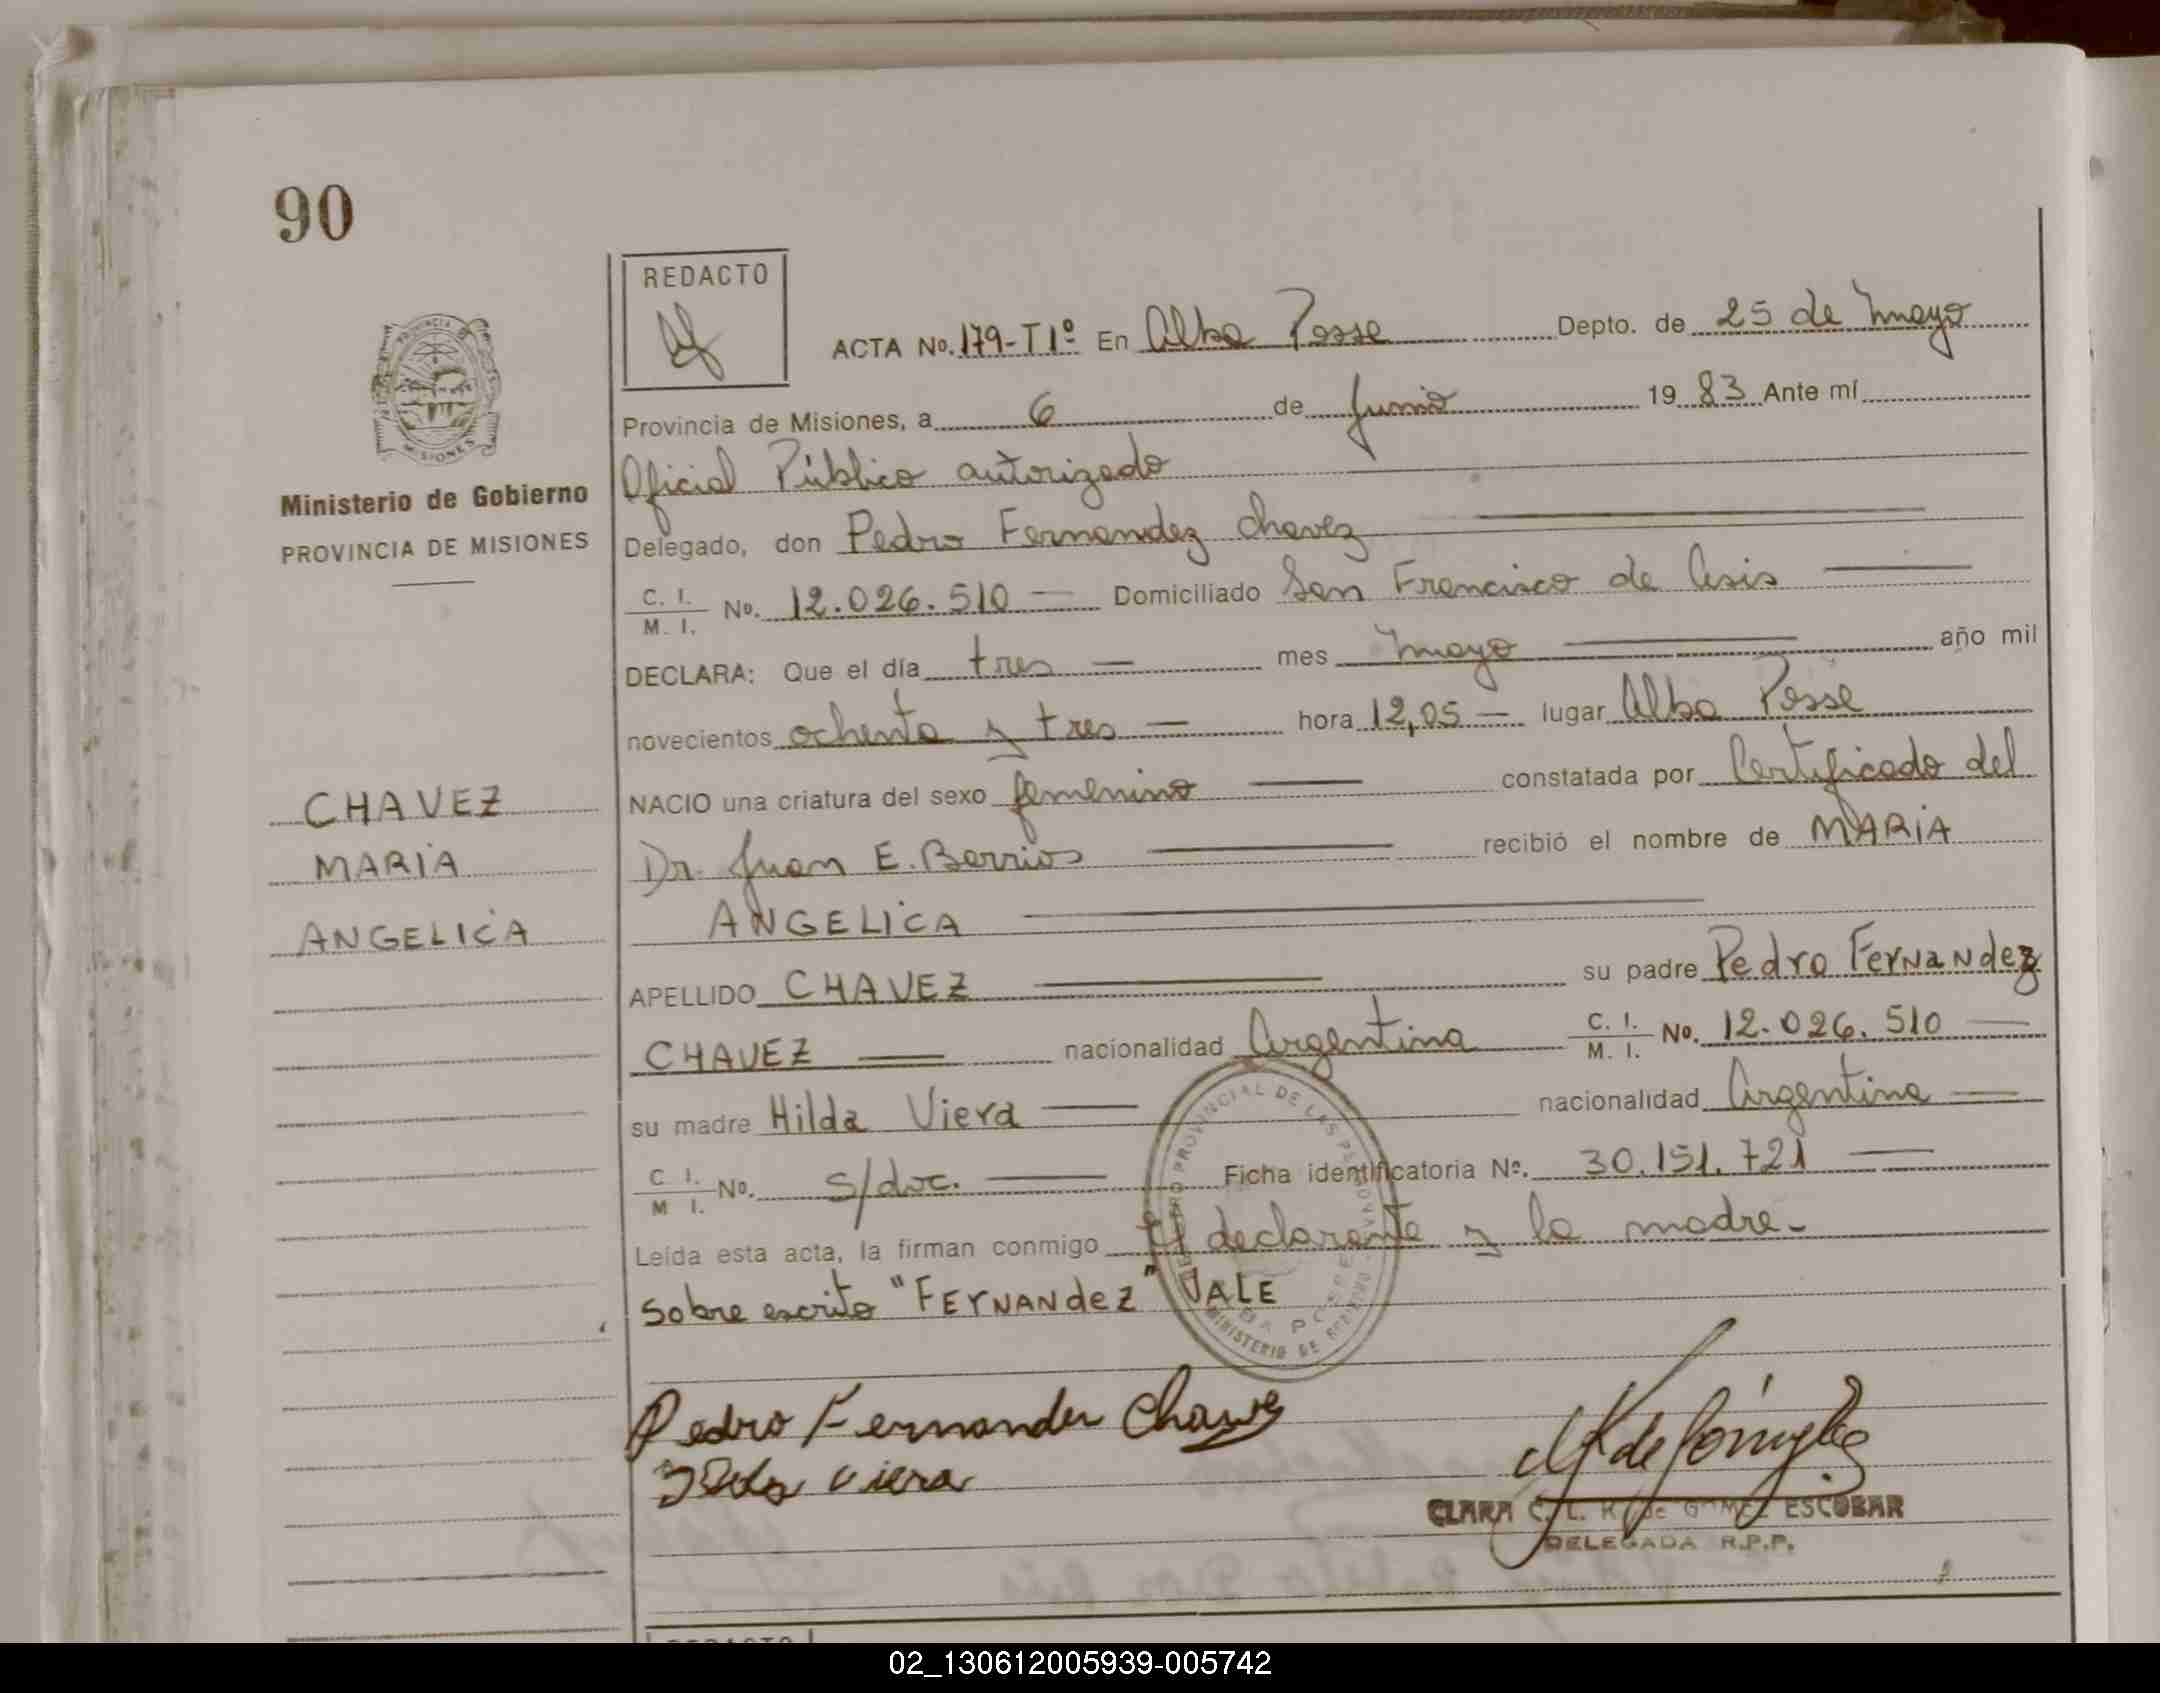 90
REDACTO
ACTA No. 179-T1º En Alba Posse Depto. de 25 de mayo
Provincia de Misiones, a 6 de Junio 19 83 Ante mí
Oficial Público autorizado
Delegado, don Pedro Fernandez Chavez
C. I. / M. I. No. 12.026.510 Domiciliado San Francisco de Asis
DECLARA: Que el día tres mes mayo año mil
novecientos ochenta y tres hora 12,05 lugar Alba Posse
NACIO una criatura del sexo femenino constatada por Certificado del
Dr. Juan E. Barrios recibió el nombre de MARIA
ANGELICA
APELLIDO CHAVEZ su padre Pedro Fernandez
CHAVEZ nacionalidad Argentina C. I. / M. I. No. 12.026.510
su madre Hilda Viera nacionalidad Argentina
C. I. / M I. No. s/doc. Ficha identificatoria Nº. 30.151.721
Leída esta acta, la firman conmigo El declarante y la madre.-
Sobre escrito "FERNANdEZ" VALE
Pedro Fernandez Chavez
Ilda Viera
CLARA C. L. K. de GOMEZ ESCOBAR
DELEGADA R.P.P.
PROVINCIA DE
MISIONES
Ministerio de Gobierno
PROVINCIA DE MISIONES
CHAVEZ
MARIA
ANGELICA
REDACTO
02_130612005939-005742